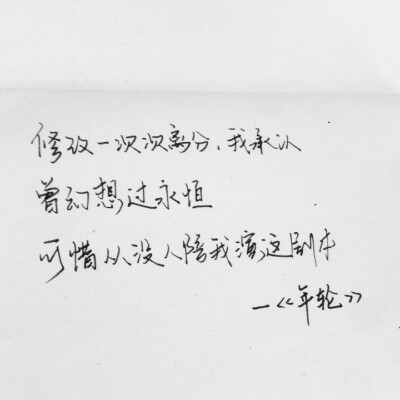 修改一次次离分,我承认
曾幻想过永恒
可惜从没人陪我演这剧本
—《年轮》